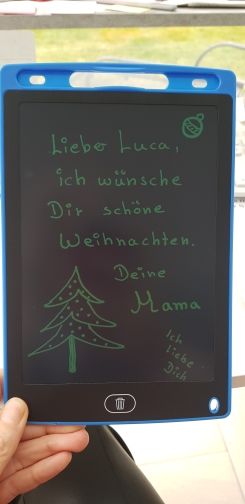 Lieber Luca,
ich wünsche
Dir schöne
Weihnachten.
Deine
Mama
Ich
liebe
Dich